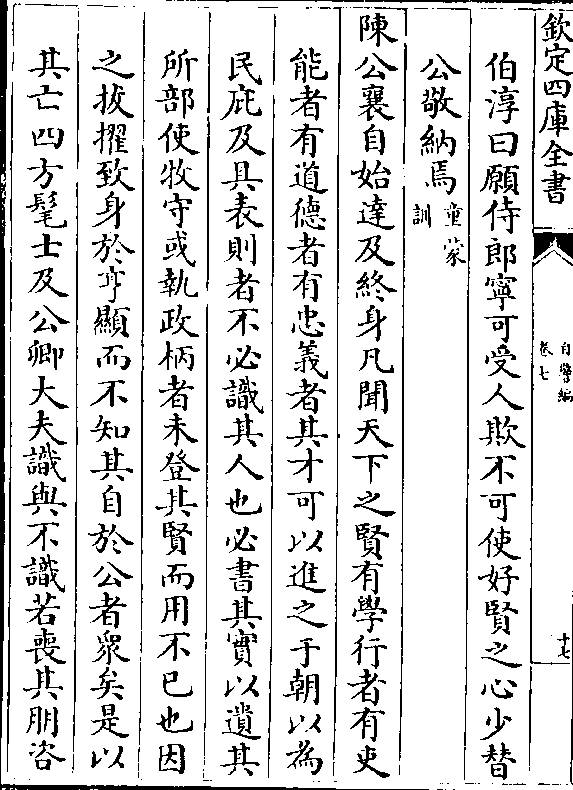 欽定四庫全書
自警編
卷七
十七
伯淳曰願侍郎寧可受人欺不可使好賢之心少替
公敬納焉童蒙訓
陳公襄自始達及終身凡聞天下之賢有學行者有吏
能者有道德者有忠義者其才可以進之于朝以為
民庇及具表則者不必識其人也必書其實以遺其
所部使牧守或執政柄者未登其賢而用不已也因
之拔擢致身於亨顯而不知其自於公者衆矣是以
其亡四方髦士及公卿大夫識與不識若喪其朋咨